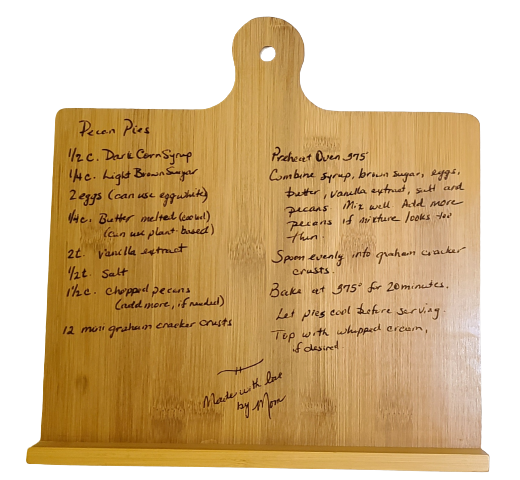 Pecan Pies
1/2 c. Dark Corn Syrup
1/4 c. Light Brown Sugar
2 eggs (can use egg white)
1/4 c. Butter melted (cooled)
(can use plant-based)
2t. vanilla extract
1/2 t. Salt
1 1/2 c. chopped pecans
(add more, if needed)
12 mini graham cracker crusts
Preheat Oven 375
Combine syrup, brown sugar, eggs,
butter, vanilla extract, salt and
pecans. Mix well. Add more
pecans if mixture looks too
thin.
Spoon evenly into graham cracker
crusts.
Bake at 375° for 20 minutes.
Let pies cool before serving.
Top with whipped cream,
if desired
Made with love
by Mom